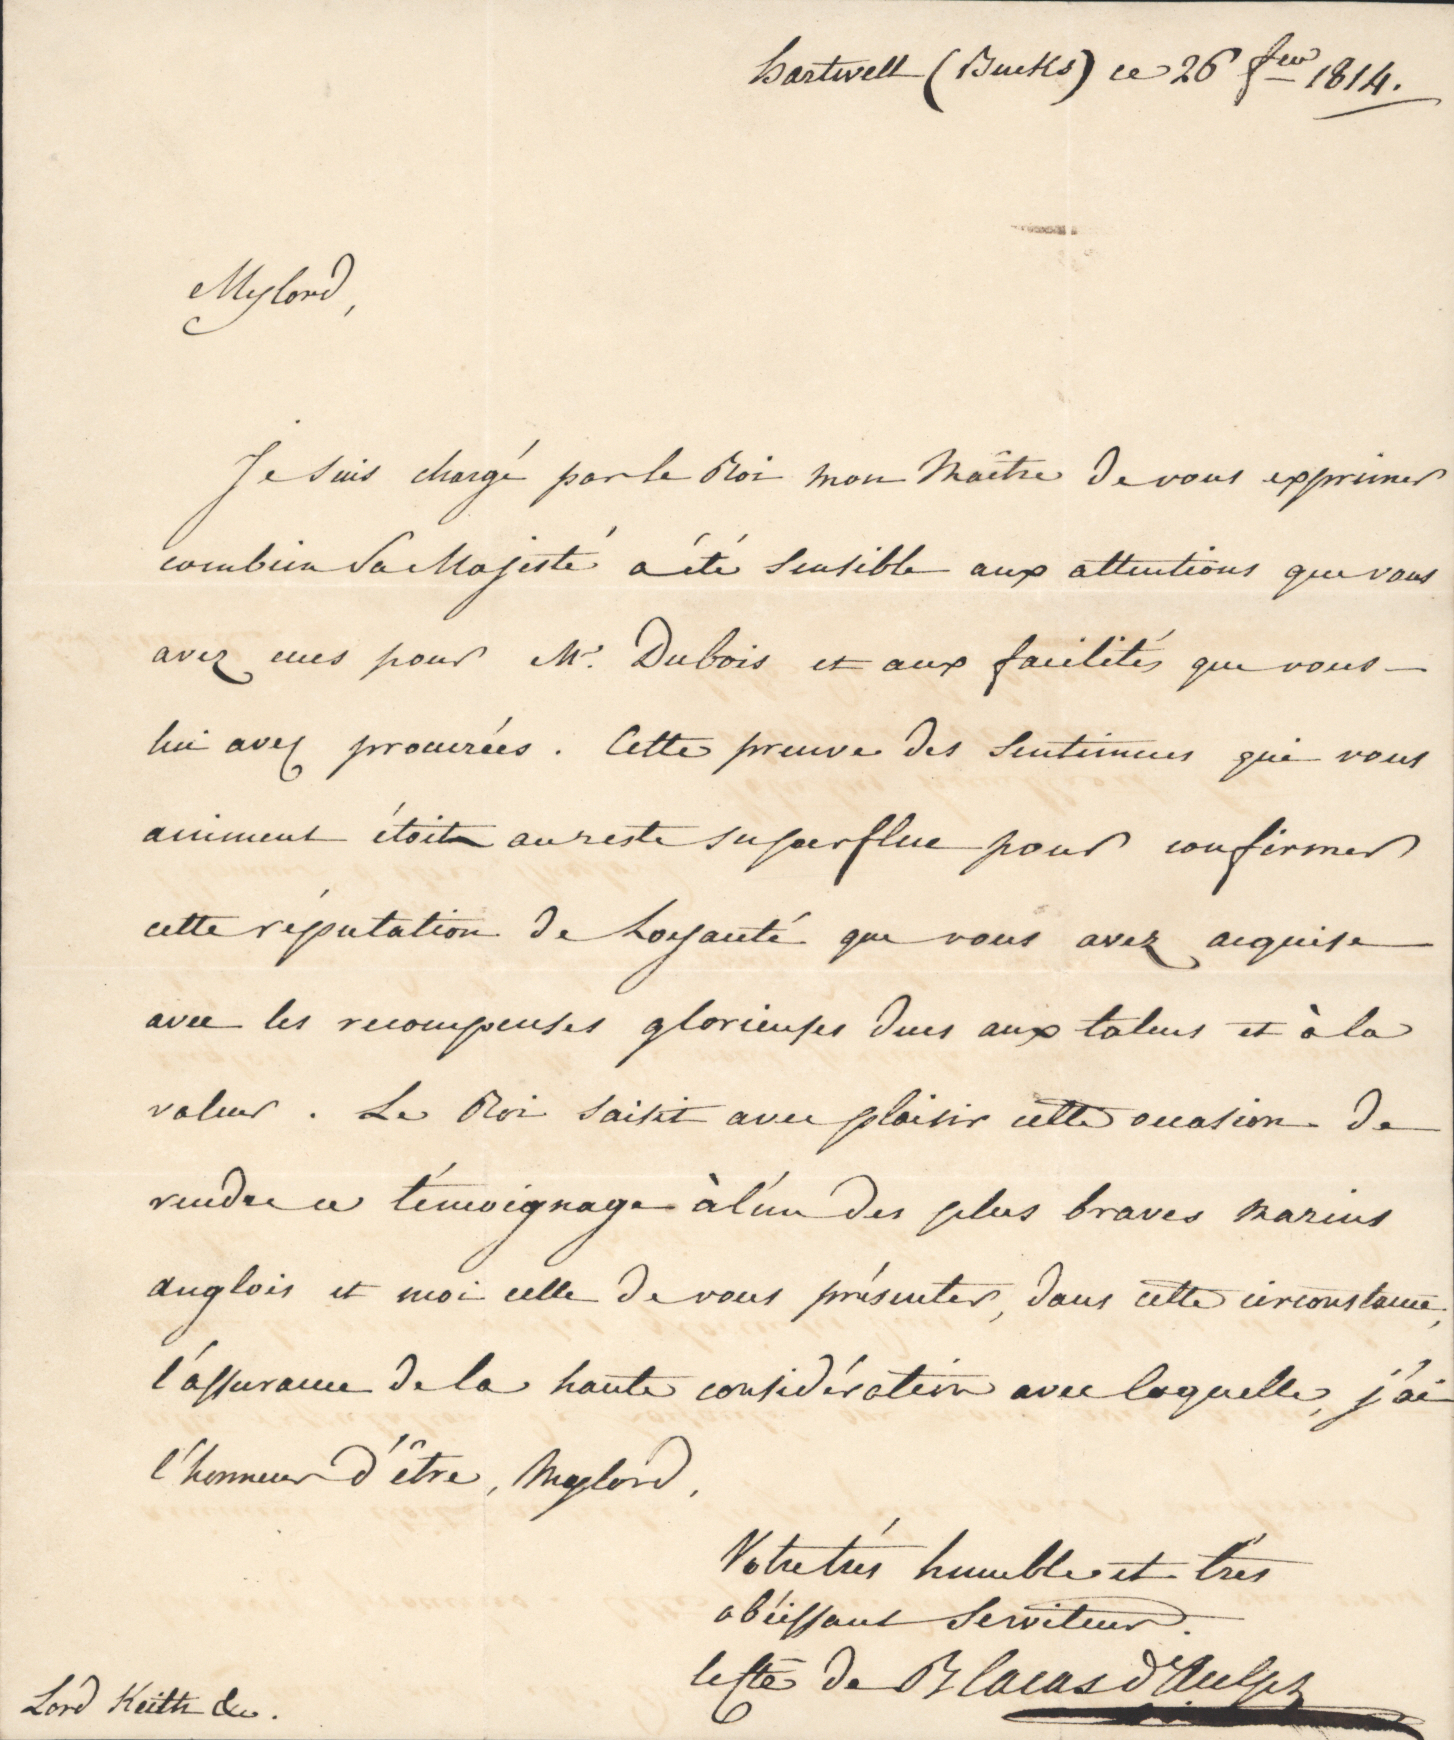 hartwell (Bucks) ce 26 fev 1814.
Mylord,
Je suis chargé par le Roi mon Maître de vous exprimer
combien Sa Majesté a été sensible aux attentions que vous
avez eues pour Mr. Dubois et aux facilités que vous
lui avez procurées. Cette preuve des sentimens qui vous
animent étoit au reste superflue pour confirmer
cette réputation de Loyauté que vous avez acquise
avec les recompenses glorieuses dues aux talens et à la
valeur. Le Roi saisit avec plaisir cette occasion de
rendre ce témoignage à l'un des plus braves marins
anglois et moi celle de vous présenter, dans cette circonstance,
l'assurance de la haute considération avec laquelle, j'ai
l'honneur d'être, Mylord,
Votre très humble et très
obéissant Serviteur.
le Cte de Blacas d'Aulps
Lord Keith &c.